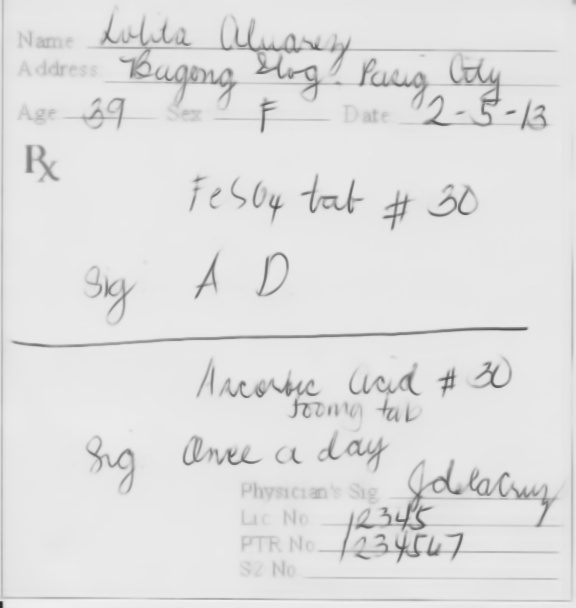 Name Lolita Alvarez
Address Bagong Ilog. Pasig City
Age 39 Sex F Date 2-5-13
Rx
FeSO4 tab # 30
Sig A D
Ascorbic Acid # 30
500mg tab
Sig Once a day
Physician's Sig JdelaCruz
Lic No 12345
PTR No. 1234567
S2 No